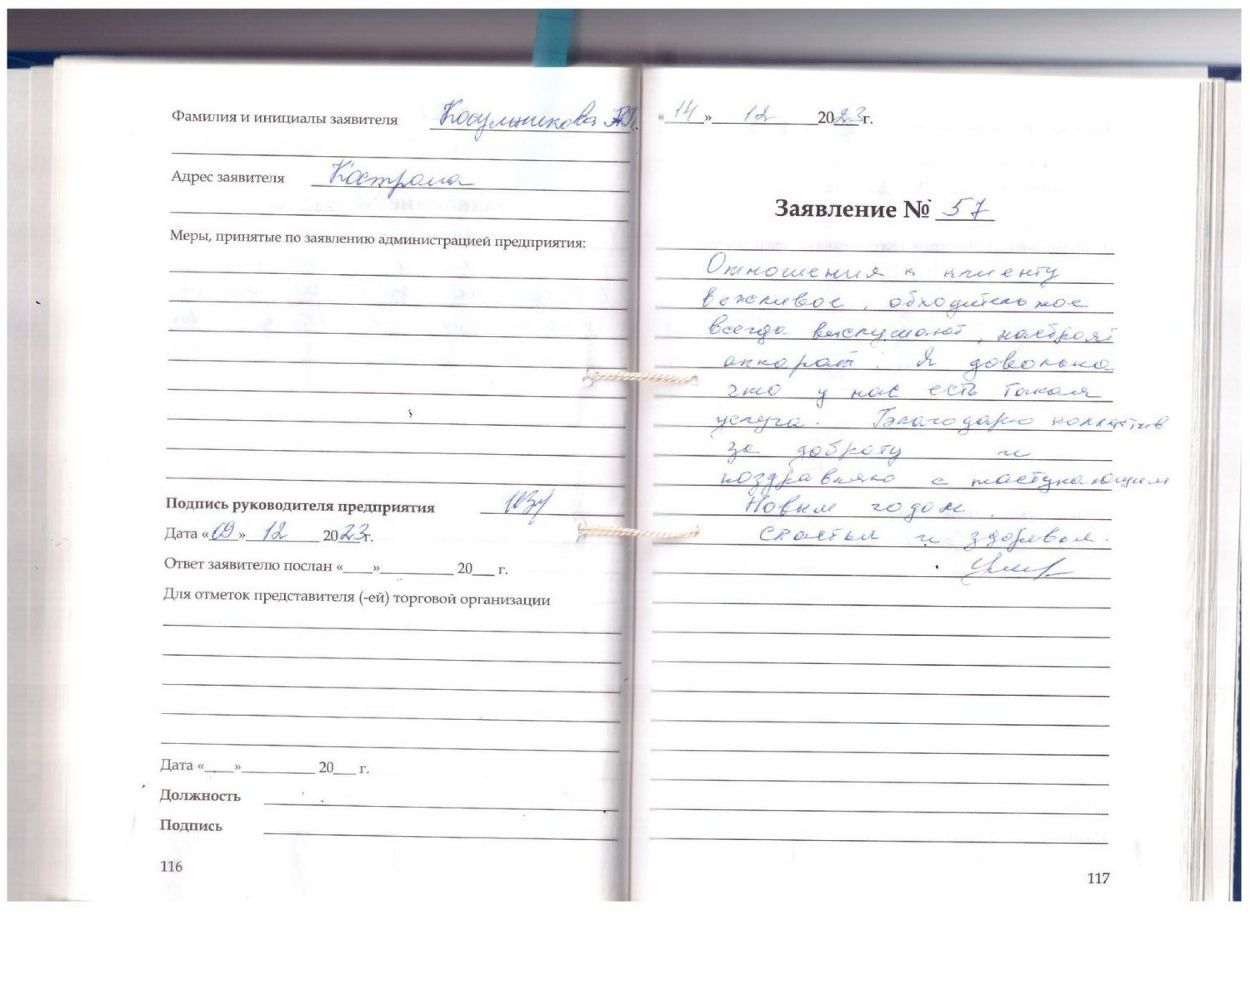 Фамилия и инициалы заявителя
Адрес заявителя Кострома
Меры, принятые по заявлению администрацией предприятия:
Подпись руководителя предприятия
Дата «09» 12 2023г.
Ответ заявителю послан «____»__________ 20___ г.
Для отметок представителя (-ей) торговой организации
Дата «____»__________ 20___ г.
Должность
Подпись
116
«14» 12 2023г.
Заявление № 57
Отношения к клиенту
вежливое, обходительное
всегда выслушают, настроят
аппарат. Я довольна
что у нас есть такая
услуга. Благодарю коллектив
за доброту и
поздравляю с наступающим
Новым годом.
Счастья и здоровья.
117